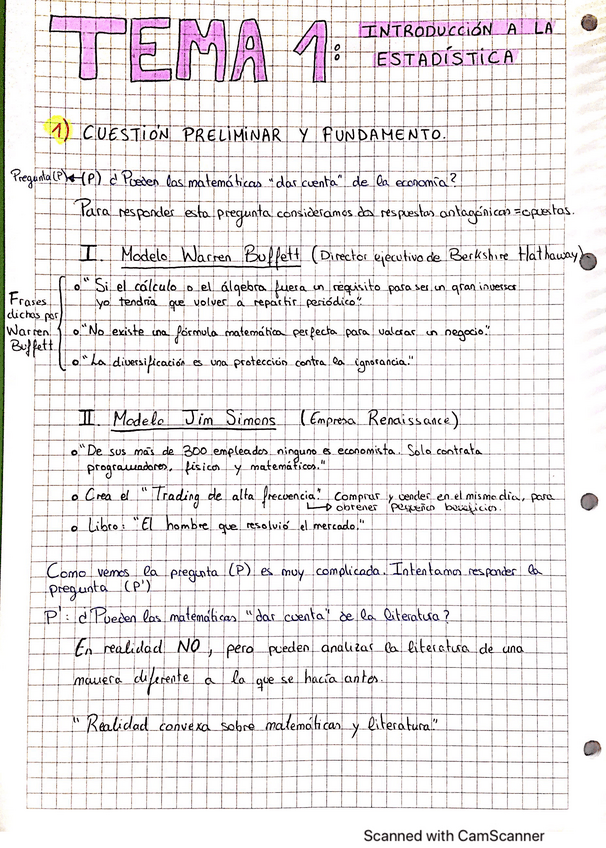 TEMA 1: INTRODUCCIÓN A LA
ESTADÍSTICA
1) CUESTIÓN PRELIMINAR Y FUNDAMENTO.
Pregunta (P) ← (P) ¿Pueden las matemáticas "dar cuenta" de la economía?
Para responder esta pregunta consideramos dos respuestas antagónicas = opuestas.
I. Modelo Warren Buffett (Director ejecutivo de Berkshire Hathaway)
Frases
dichas por
Warren
Buffett
o "Si el cálculo o el álgebra fuera un requisito para ser un gran inversor
yo tendría que volver a repartir periódico".
o "No existe una fórmula matemática perfecta para valorar un negocio."
o "La diversificación es una protección contra la ignorancia."
II. Modelo Jim Simons (Empresa Renaissance)
o "De sus más de 300 empleados ninguno es economista. Solo contrata
programadores, físicos y matemáticos."
o Crea el "Trading de alta frecuencia." Comprar y vender en el mismo día, para
↳ obtener pequeños beneficios.
o Libro: "El hombre que resolvió el mercado."
Como vemos la pregunta (P) es muy complicada. Intentamos responder la
pregunta (P')
P': ¿Pueden las matemáticas "dar cuenta" de la literatura?
En realidad NO, pero pueden analizar la literatura de una
manera diferente a la que se hacía antes.
"Realidad convexa sobre matemáticas y literatura."
Scanned with CamScanner